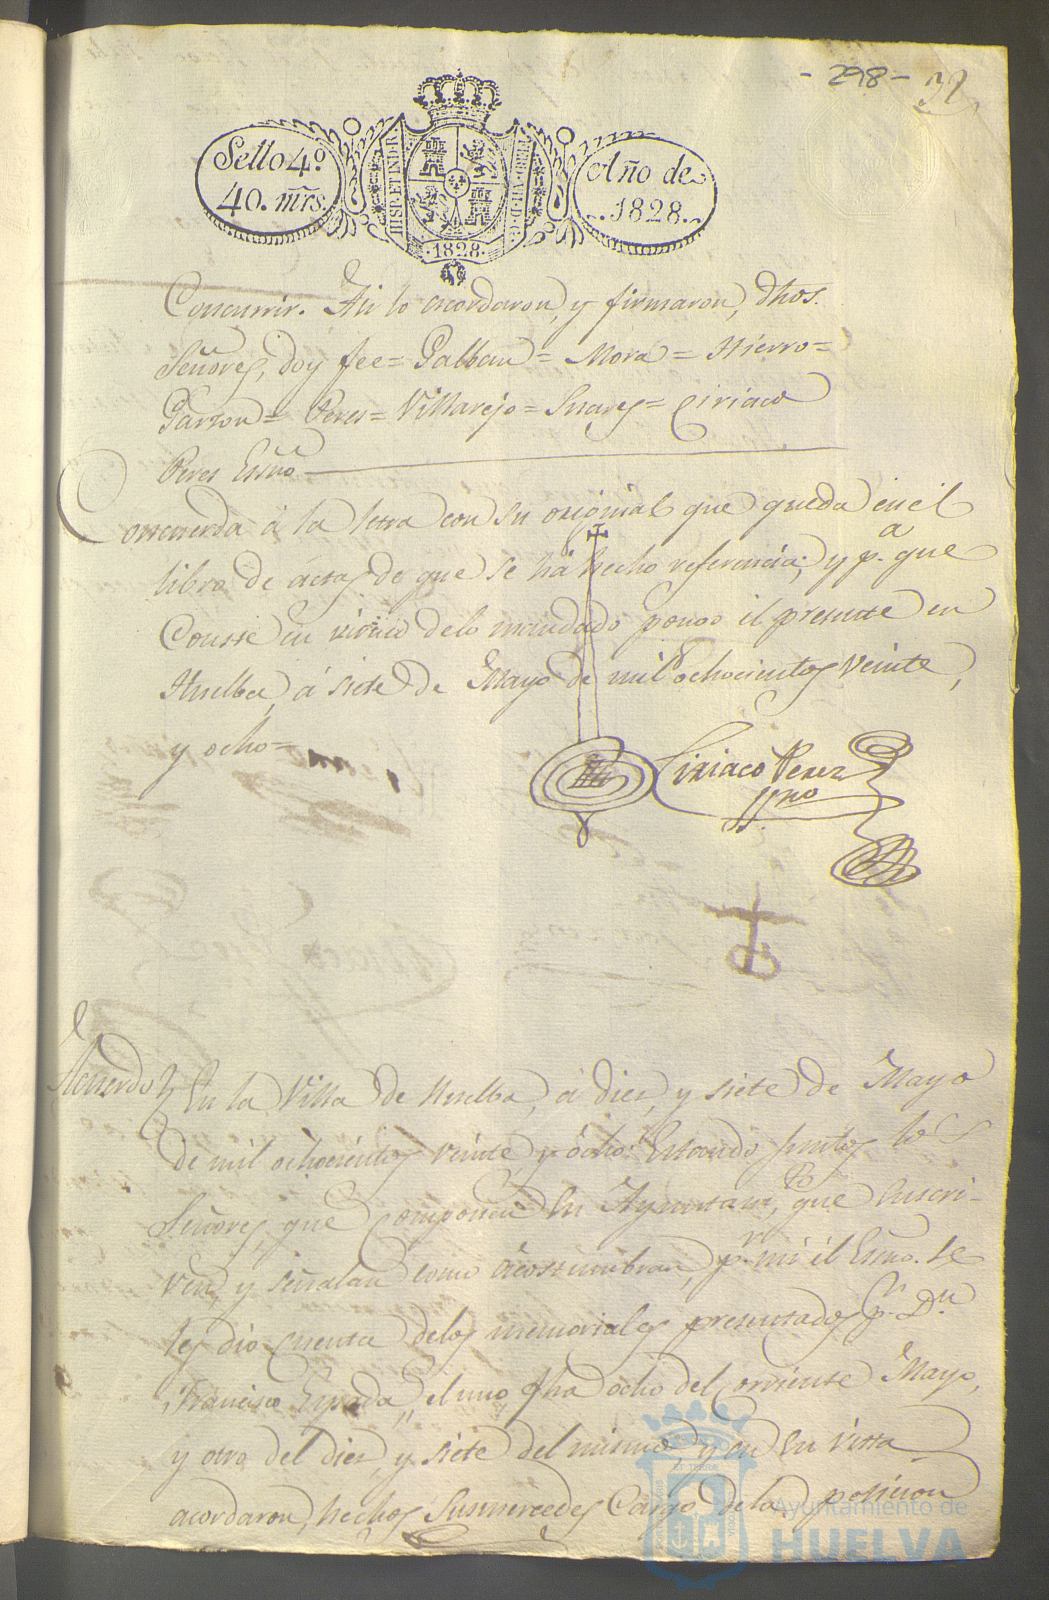 - 298 -
32
Sello 4º
40. mrs.
HISP. ET IND. R
1828
Año de
1828.
Concurrir. Asi lo acordaron, y firmaron, dhos.
Señores, doy fee = Galban = Mora = Hierro =
Garzon = Peres = Villarejo = Suares = Ciriaco
Peres Essno
Concuerda á la letra con su original que queda en el
libro de actas de que se há hecho referencia; y pa. que
Conste en virtud delo mandado pongo el presente en
Huelba, á siete de Mayo de mil ochocientos veinte,
y ocho =
Ciriaco Perez
ssno
Acuerdo En la Villa de Huelba, á diez, y siete de Mayo
de mil ochocientos veinte, y ócho: Estando juntos los
Señores, que componen su Ayuntamto, que suscri-
ven, y señalan como acostumbran, pr. mi el Essno. se
les dio cuenta delos memoriales presentados pr. Dn
Francisco Espada, el uno, fha ocho del corriente Mayo,
y otro del diez, y siete del mismo, y en su vista
acordaron, hechos Susmercedes Cargo dela posicion
Ayuntamiento de
HUELVA